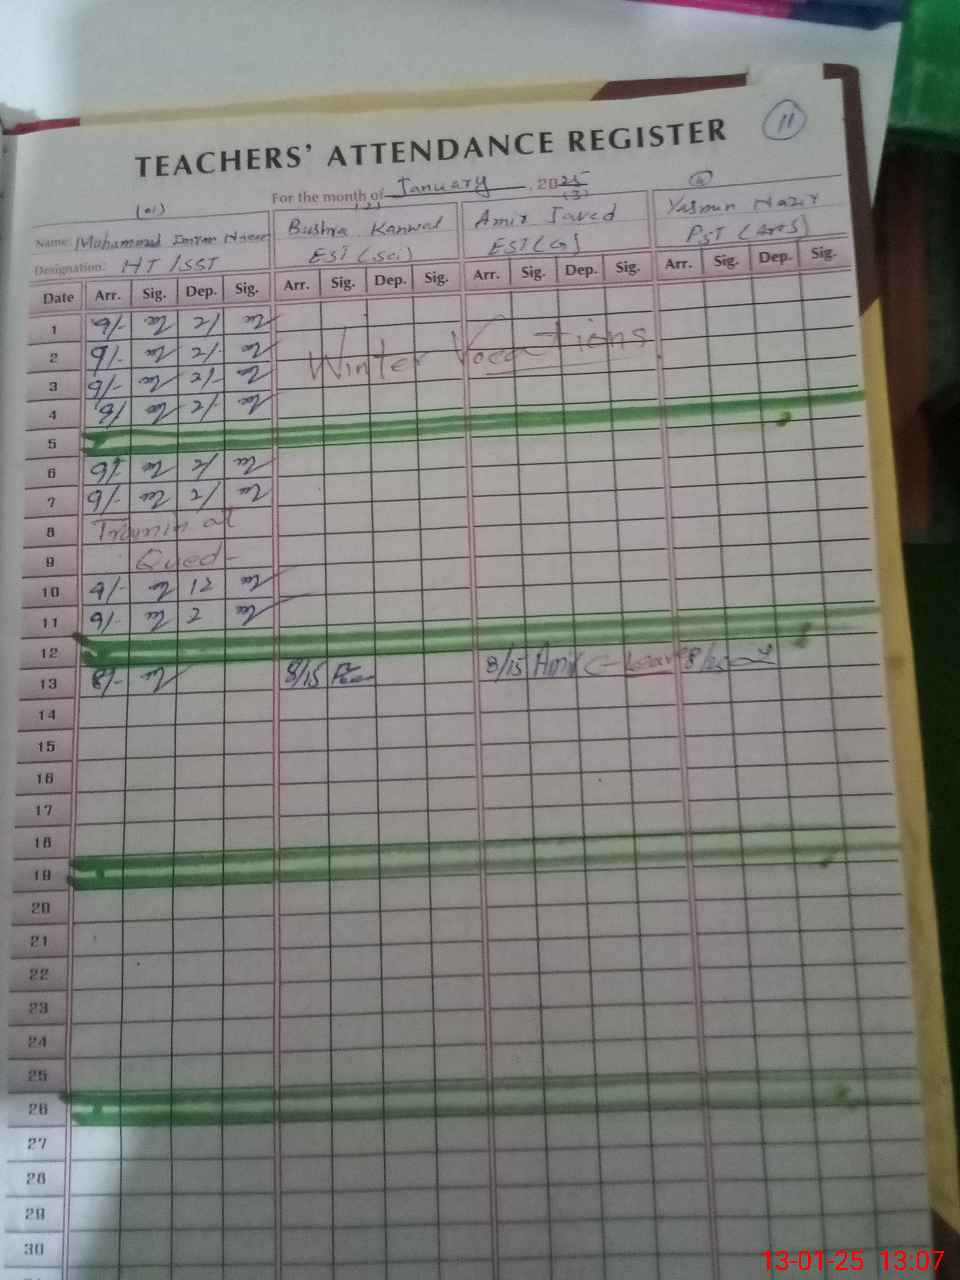 11
TEACHERS' ATTENDANCE REGISTER
For the month of January, 2025
(01) (2) (3) (4)
Name: Muhammad Imran Bushra Kanwal Amir Javed Yasmin Nazir
Designation: HT/SST EST (Sci) EST (G) PST (Arts)
Date Arr. Sig. Dep. Sig. Arr. Sig. Dep. Sig. Arr. Sig. Dep. Sig. Arr. Sig. Dep. Sig.
1 9/- 2/
2 9/- 2/- Winter Vocations
3 9/- 2/-
4 9/- 2/-
5
6 9/- 2/
7 9/- 2/
8 at
9
10 9/- 12
11 9/- 2
12
13 8/- 8/15 8/15 Amir C-Leave
14
15
16
17
18
19
20
21
22
23
24
25
26
27
28
29
30
13-01-25 13:07